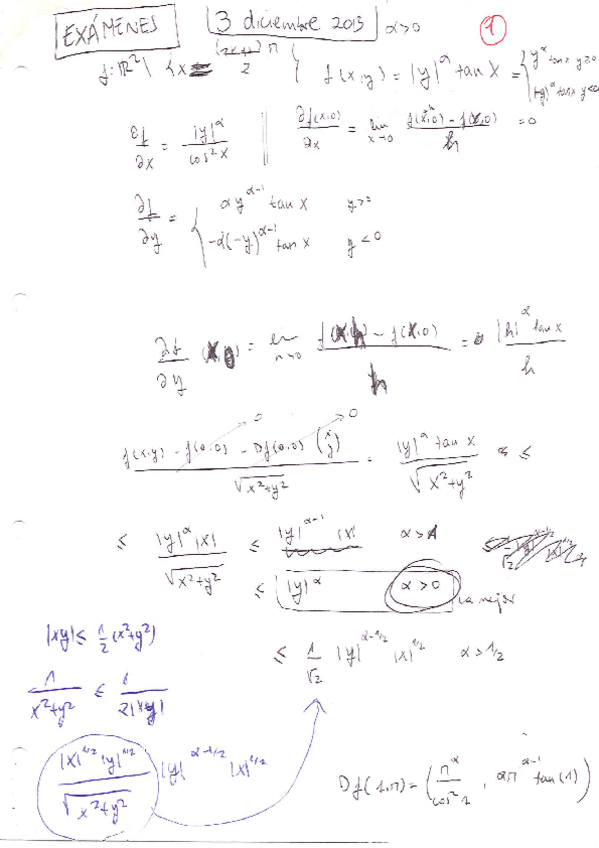 EXÁMENES 3 diciembre 2013 α>0 1
f: ℝ² \ {x = (2k+1)π / 2} f(x,y) = |y|^α tan x = { y^α tan x y≥0
(-y)^α tan x y<0
∂f/∂x = |y|^α / cos² x || ∂f(x,0)/∂x = lim x→0 = 0
∂f/∂y = { α y^(α-1) tan x
-α(-y)^(α-1) tan x y<0
∂f/∂y = lim h→0 = |h|^α tan x / h
f(x,y) - f(0,0) - Df(0,0) (x y) / √(x²+y²) = |y|^α tan x / √(x²+y²) ≤
0 0
≤ |y|^α |x| / √(x²+y²) ≤ |y|^(α-1) |x| α>1
≤ |y|^α α>0 la mejor
|xy| ≤ 1/2 (x²+y²)
≤ 1/√2 |y|^(α-1/2) |x|^(1/2) α>1/2
1/(x²+y²) ≤ 1/(2|xy|)
|x|^(1/2) |y|^(1/2) / √(x²+y²) |y|^(α-1/2) |x|^(1/2)
Df(1,π) = (π^α / cos² 1 , απ^(α-1) tan(1))